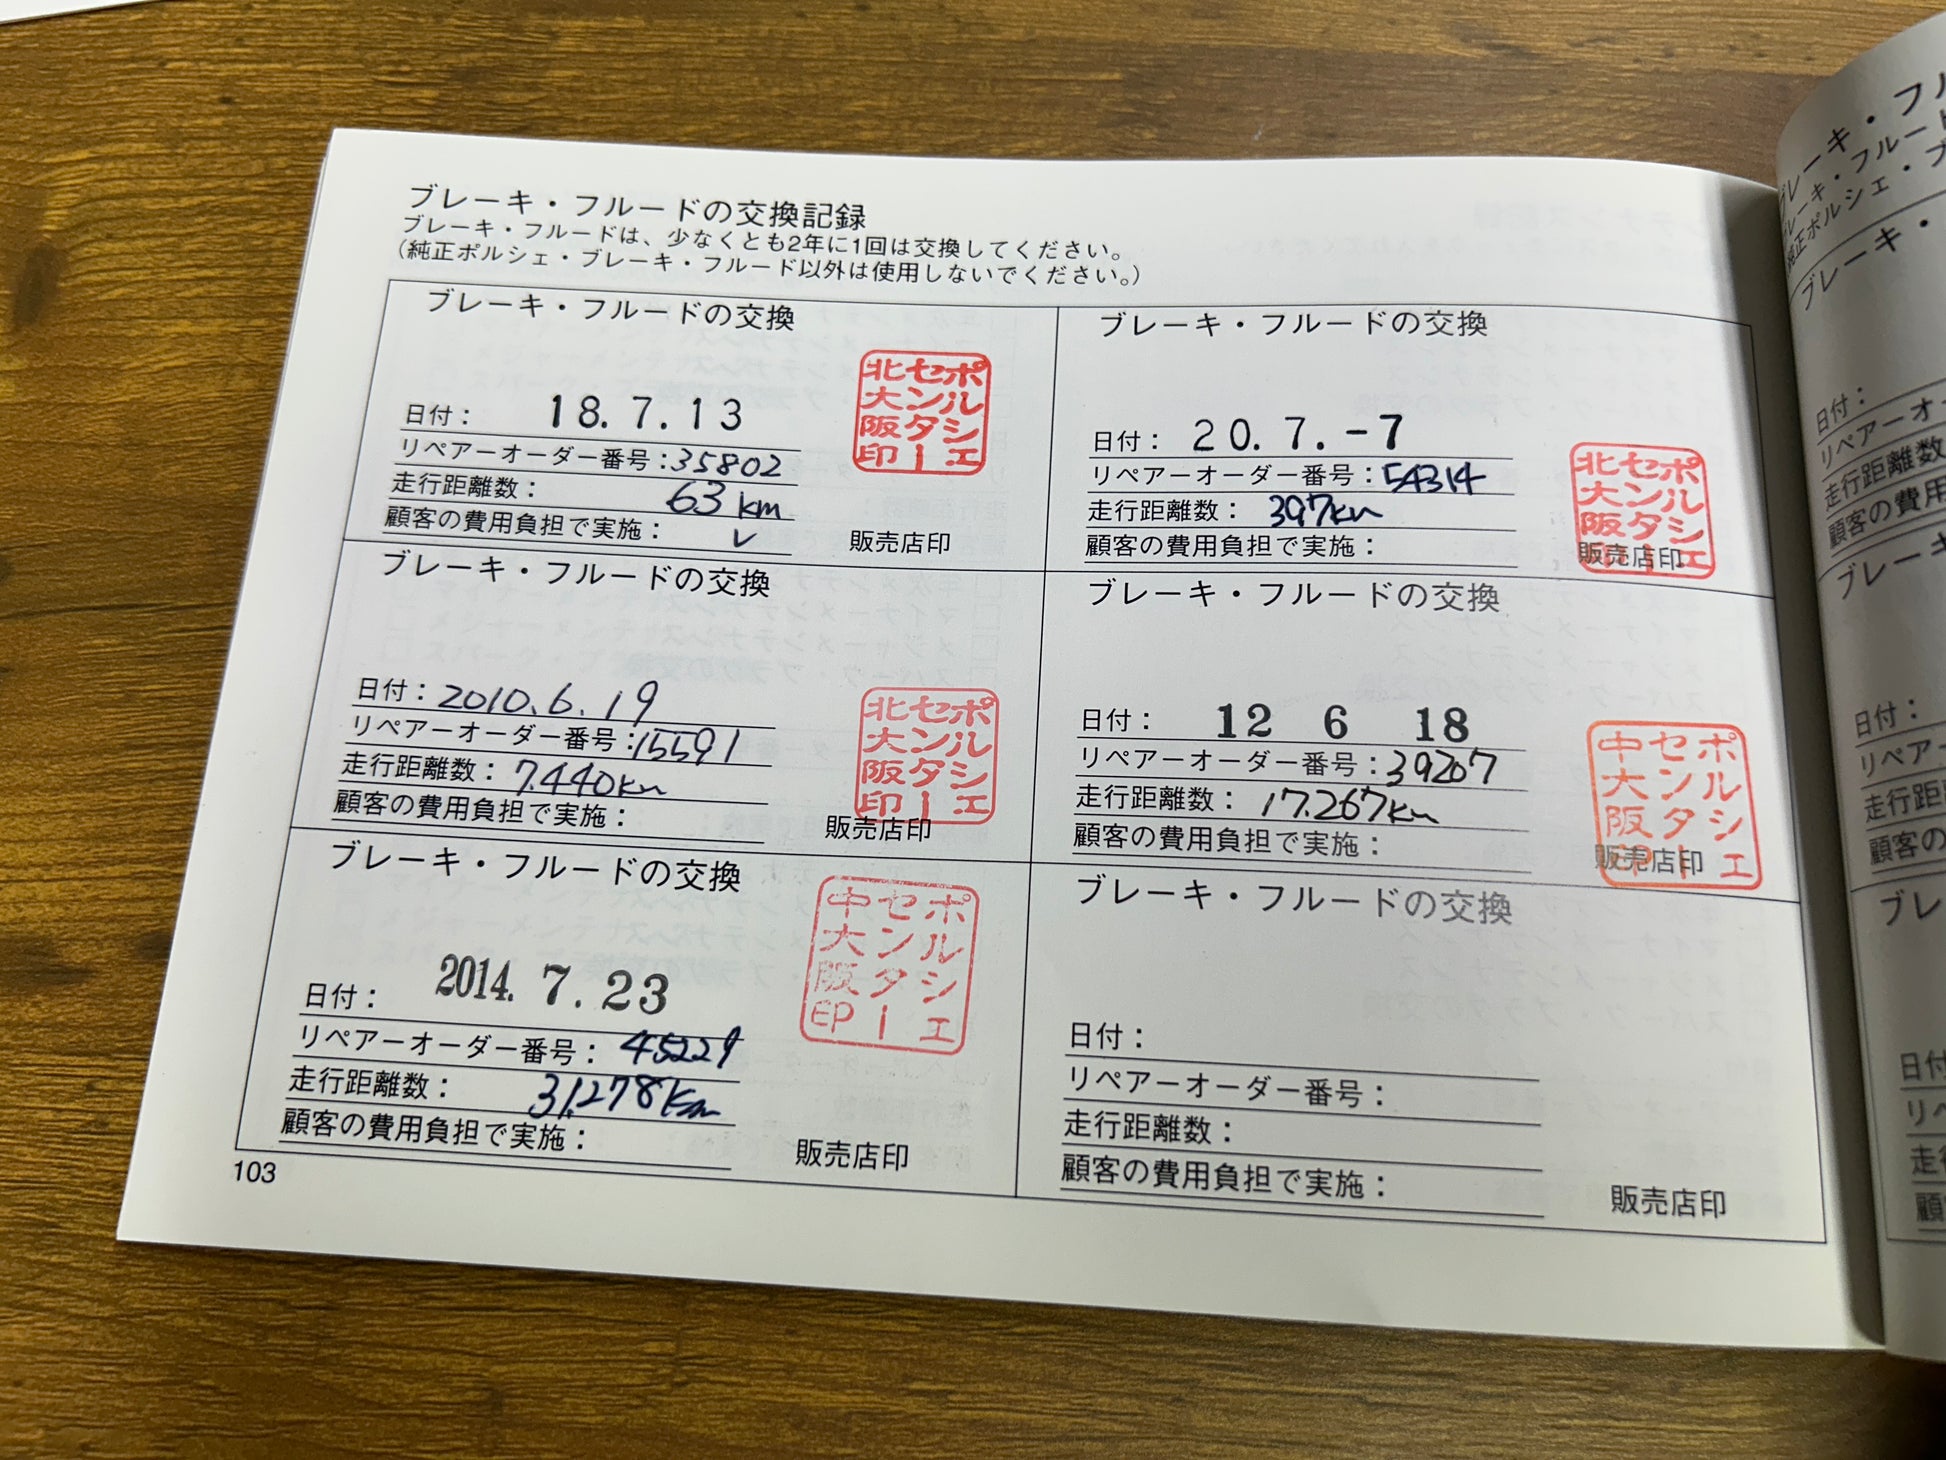 ブレーキ・フルードの交換記録
ブレーキ・フルードは、少なくとも2年に1回は交換してください。
（純正ポルシェ・ブレーキ・フルード以外は使用しないでください。）
ブレーキ・フルードの交換
日付： 18.7.13
リペアーオーダー番号：35802
走行距離数： 63km
顧客の費用負担で実施： ✓
販売店印
ポルシェセンター北大阪印
ブレーキ・フルードの交換
日付： 20.7.-7
リペアーオーダー番号：54314
走行距離数： 397km
顧客の費用負担で実施：
販売店印
ポルシェセンター北大阪印
ブレーキ・フルードの交換
日付：2010.6.19
リペアーオーダー番号：15591
走行距離数：7.440km
顧客の費用負担で実施：
販売店印
ポルシェセンター北大阪印
ブレーキ・フルードの交換
日付： 12 6 18
リペアーオーダー番号：39207
走行距離数： 17.267km
顧客の費用負担で実施：
販売店印
ポルシェセンター中大阪印
ブレーキ・フルードの交換
日付： 2014.7.23
リペアーオーダー番号： 45229
走行距離数： 31.278km
顧客の費用負担で実施：
販売店印
ポルシェセンター中大阪印
ブレーキ・フルードの交換
日付：
リペアーオーダー番号：
走行距離数：
顧客の費用負担で実施：
販売店印
103